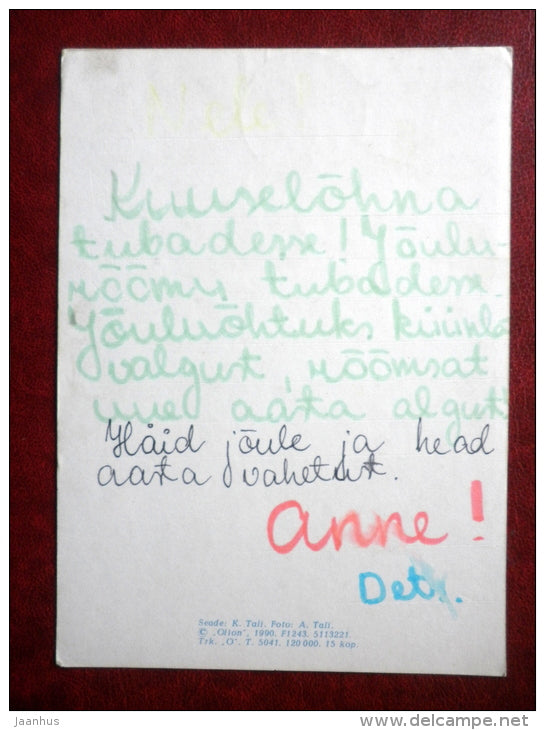 Kuuselõhna
tubadesse! Jõulu-
rõõmu tubadesse.
Jõuluõhtuks küünla
valgust, rõõmsat
uue aasta algust!
Häid jõule ja head
aasta vahetust.
Anne!
Seade: K. Tali. Foto: A. Tali.
© „Olion", 1990. F1243. 5113221.
Trk. „O". T. 5041. 120 000. 15 kop.
jaanhus
www.delcampe.net